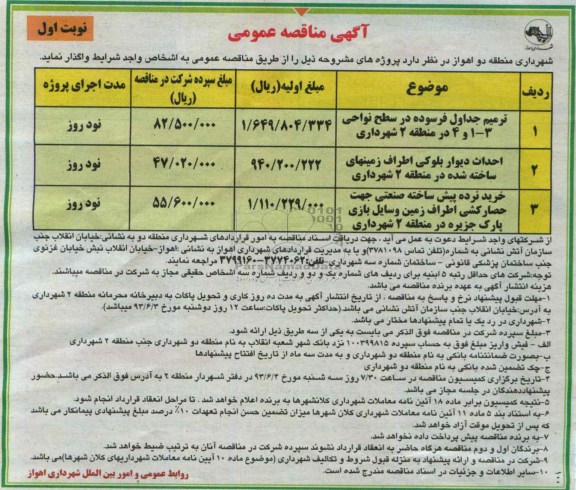 آگهی مناقصه عمومی
نوبت اول
شهرداری منطقه دو اهواز در نظر دارد پروژه های مشروحه ذیل را از طریق مناقصه عمومی به اشخاص واجد شرایط واگذار نماید.
ردیف موضوع مبلغ اولیه(ریال) مبلغ سپرده شرکت در مناقصه (ریال) مدت اجرای پروژه
۱ ترمیم جداول فرسوده در سطح نواحی ۳-۱ و ۴ در منطقه ۲ شهرداری ۱/۶۴۹/۸۰۴/۳۳۴ ۸۲/۵۰۰/۰۰۰ نود روز
۲ احداث دیوار بلوکی اطراف زمینهای ساخته شده در منطقه ۲ شهرداری ۹۴۰/۲۰۰/۲۲۲ ۴۷/۰۲۰/۰۰۰ نود روز
۳ خرید نرده پیش ساخته صنعتی جهت حصارکشی اطراف زمین وسایل بازی پارک جزیره در منطقه ۲ شهرداری ۱/۱۱۰/۲۲۹/۰۰۰ ۵۵/۶۰۰/۰۰۰ نود روز
از شرکتهای واجد شرایط دعوت به عمل می آید ، جهت دریافت اسناد مناقصه به امور قراردادهای شهرداری منطقه دو به نشانی:خیابان انقلاب جنب
سازمان آتش نشانی به شماره(تلفن تماس ۳۷۸۱۰۹۸) یا به مدیریت قراردادهای شهرداری اهواز به نشانی :اهواز-خیابان انقلاب نبش خیابان غزنوی
جنب ساختمان پزشکی قانونی - ساختمان شماره سه شهرداری-تلفن:۳۷۷۴۰۶۲-۳۷۹۹۱۶۰ مراجعه نمایند.
توجه:شرکت های حداقل رتبه ۵ ابنیه برای ردیف های شماره یک و دو و ردیف شماره سه اشخاص حقیقی مجاز به شرکت در مناقصه میباشند.
هزینه انتشار آگهی به عهده برنده مناقصه می باشد.
۱-مهلت قبول پیشنهاد نرخ و پاسخ به مناقصه ، از تاریخ انتشار آگهی به مدت ده روز کاری و تحویل پاکات به دبیرخانه محرمانه منطقه ۲ شهرداری
به آدرس:خیابان انقلاب جنب سازمان آتش نشانی می باشد.(حداکثر تحویل پاکات:ساعت ۱۲ روز دوشنبه مورخ ۹۳/۶/۳ میباشد)
۲-شهرداری در رد یک یا تمام پیشنهادها مختار می باشد.
۳-مبلغ سپرده شرکت در مناقصه فوق الذکر می بایست به یکی از سه طریق ذیل ارائه شود.
الف - فیش واریز مبلغ فوق به حساب سپرده ۱۰۰۳۹۹۸۱۵ نزد بانک شهر شعبه انقلاب به نام منطقه دو شهرداری جنب منطقه ۲ شهرداری
ب-بصورت ضمانتنامه بانکی به نام منطقه دو شهرداری و به مدت سه ماه از تاریخ افتتاح پیشنهادها
ج-چک تضمین شده بانکی به نام منطقه دو شهرداری
۴-تاریخ برگزاری کمیسیون مناقصه در ساعت ۷/۳۰ روز سه شنبه مورخ ۹۳/۶/۴ در دفتر شهردار منطقه ۲ به آدرس فوق الذکر می باشد.حضور
پیشنهاددهندگان در جلسه مجاز می باشد.
۵-نتیجه کمیسیون برابر ماده ۱۸ آئین نامه معاملات شهرداری کلانشهرها به برنده اعلام خواهد شد . تا مراحل انعقاد قرارداد انجام شود.
۶-به استناد بند ۵ ماده ۱۱ آئین نامه معاملات شهرداری کلان شهرها میزان تضمین حسن انجام تعهدات ۱۰٪ درصد مبلغ پیشنهادی پیمانکار می باشد
که پس از تحویل موقت آزاد خواهد شد.
۷-به برنده مناقصه پیش پرداخت داده نخواهد شد.
۸-برندگان اول و دوم مناقصه هرگاه حاضر به انعقاد قرارداد نشوند سپرده شرکت در مناقصه آنان به ترتیب ضبط خواهد شد.
۹-شرکت در مناقصه و ارائه پیشنهاد به منزله قبول شروط و تکالیف شهرداری (موضوع ماده ۱۰ آیین نامه معاملات شهرداریهای کلان شهرها)می باشد.
۱۰-سایر اطلاعات و جزئیات در اسناد مناقصه مندرج شده است.
روابط عمومی و امور بین الملل شهرداری اهواز